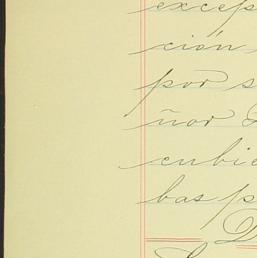 excep
ción
por s
ñor
cubie
bas p